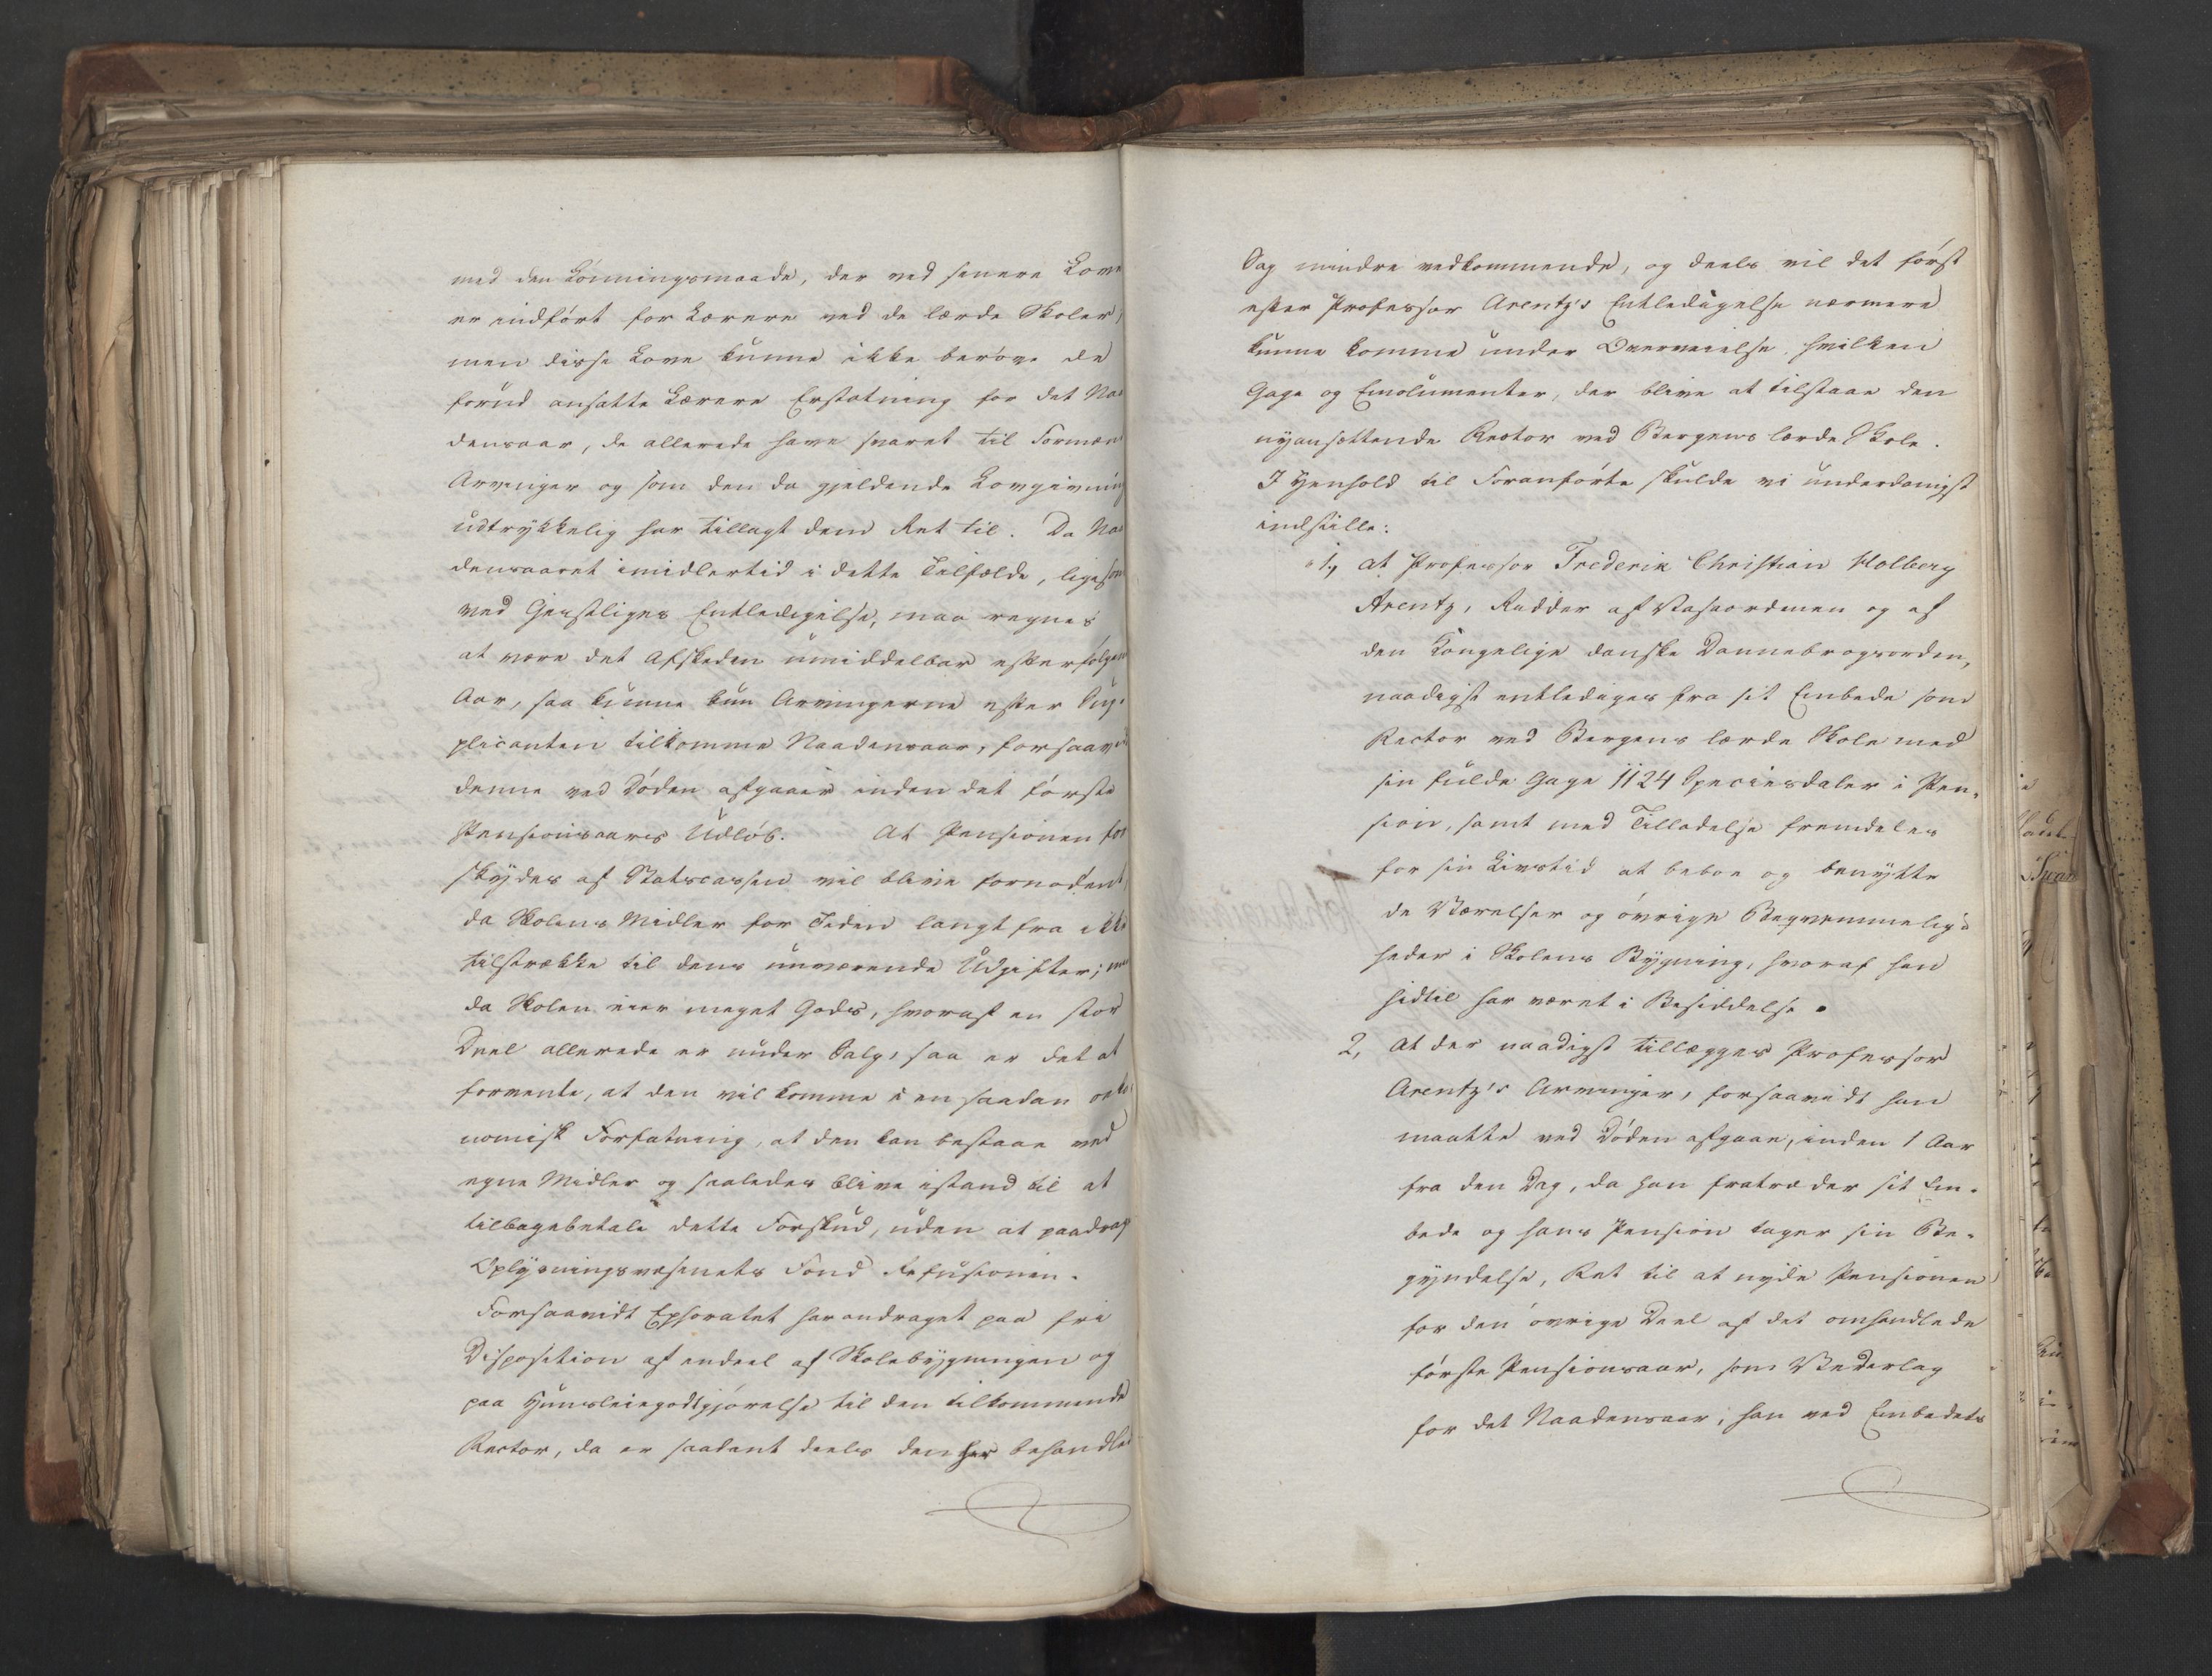 med den Lønningsmaade, der ved senere Love
er indført for Lærere ved de lærde Skoler,
men disse Love kunne ikke berøve de
forud ansatte Lærere Erstatning for det Naa
densaar, de allerede have svaret til Formæn
Arvinger og som den da gjeldende Lovgivning
udtrykkelig har tillagt dem Ret til. Da Naa
densaaret imidlertid i dette Tilfælde, ligesom
ved Geistliges Entledigelse, maa regnes
at være det Afskeden umiddelbar efterfølgen
Aar, saa kunne kun Arvingerne efter Sup-
plicanten tilkomme Naadensaar, forsaavidt
denne ved Døden afgaaer inden det første
Pensionsaars Udløb. At Pensionen for
skydes af Statscassen vil blive fornøden
da Skolens Midler for Tiden langt fra ikke
tilstrække til dens nuværende Udgifter; men
da Skolen eier meget Gods, hvoraf en stor
Deel allerede er under Salg, saa er det at
formente, at den vil komme i en saadan oeko
nomisk Forfatning, at den kan bestaae ved
egne Midler og saaledes blive istand til at
tilbagebetale dette Forskud, uden at paadrage
Oplysningsvæsenets Fond Refusionen.
Forsaavidt Ephoratet har andraget paa fri
Disposition af endeel af Skolebygningen og
paa Huusleiegodtgjørelse til den tilkommende
Rector, da er saadant deels den her behandlede
Sag mindre vedkommende, og deels vil det først
efter Professor Arentz's Entledigelse nærmere
kunne komme under Overveielse, hvilken
Gage og Emolumenter, der blive at tilstaae den
nyansættende Rector ved Bergens lærde Skole.
I Henhold til Foranførte skulde vi underdanigst
indstille:
1, at Professor Frederik Christian Holberg
Arentz, Ridder af Vasaordenen og af
den Kongelige danske Dannebrogsorden,
naadigst entlediges fra sit Embede som
Rector ved Bergens lærde Skole med
sin fulde Gage 1124 Speciesdaler i Pen-
sion, samt med Tilladelse fremdeles
for sin Livstid at beboe og benytte
de Værelser og øvrige Beqvemmelig-
heder i Skolens Bygning, hvoraf han
hidtil har været i Besiddelse.
2, At der naadigst tillægges Professor
Arentz's Arvinger, forsaavidt han
maatte ved Døden afgaae, inden 1 Aar
fra den Dag, da han fratræder sit Em-
bede og hans Pension tager sin Be-
gyndelse, Ret til at nyde Pensionen
for den øvrige Deel af det omhandlede
første Pensionsaar, som Vederlag
for det Naadensaar, han ved Embedets